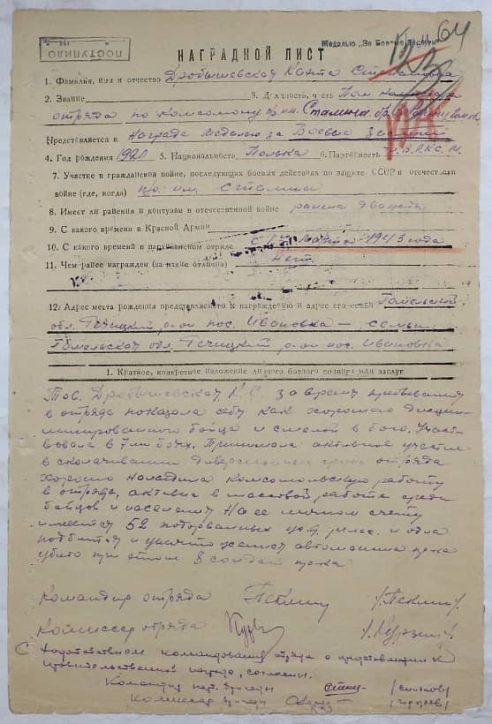 ПОСТУПИЛО
Медалью „За Боевые Заслуги"
НАГРАДНОЙ ЛИСТ
1. Фамилия, имя и отчество Дробышевская
2. Звание 3. Должность, часть Пом. комиссара
отряда по комсомолу им. Сталина
Представляется к Награде Медалью за Боевые Заслуги
4. Год рождения 5. Национальность Полька 6. Партийность ВЛКСМ
7. Участие в гражданской войне, последующих боевых действиях по защите СССР и отечествен
войне (где, когда) п/о им. Сталина
8. Имеет ли ранения и контузии в отечественной войне ранена дважды
9. С какого времени в Красной Армии
10. С какого времени в партизанском отряде с марта 1943 года
11. Чем ранее награжден (за какие отличия) Нет
12. Адрес места рождения представляемого к награждению и адрес его семьи Гомельской
обл. Речицкий р-он пос. Ивановка – семьи
Гомельская обл. Речицкий р-он пос. Ивановка
1. Краткое, конкретное изложение личного боевого подвига или заслуг
Тов. Дробышевская К. С. за время пребывания
в отряде показала себя как хорошего дисцип
линированного бойца и смелой в бою. Участ
вовала в 7 ми боях. Принимала активное участие
в сколачивании диверсионных групп отряда
Хорошо наладила комсомольскую работу
в отряде, активна в массовой работе среди
бойцов и населения На ее личном счету
имеется 52 подорванных рельс. и одна
подбитая и уничтоженная автомашина
убито при этом 8 солдат
Командир отряда
Комиссар отряда
С ходатайством командования отряда о представлении к
правительственной награде, согласны.
Командир парт. бригады
Комиссар бригады